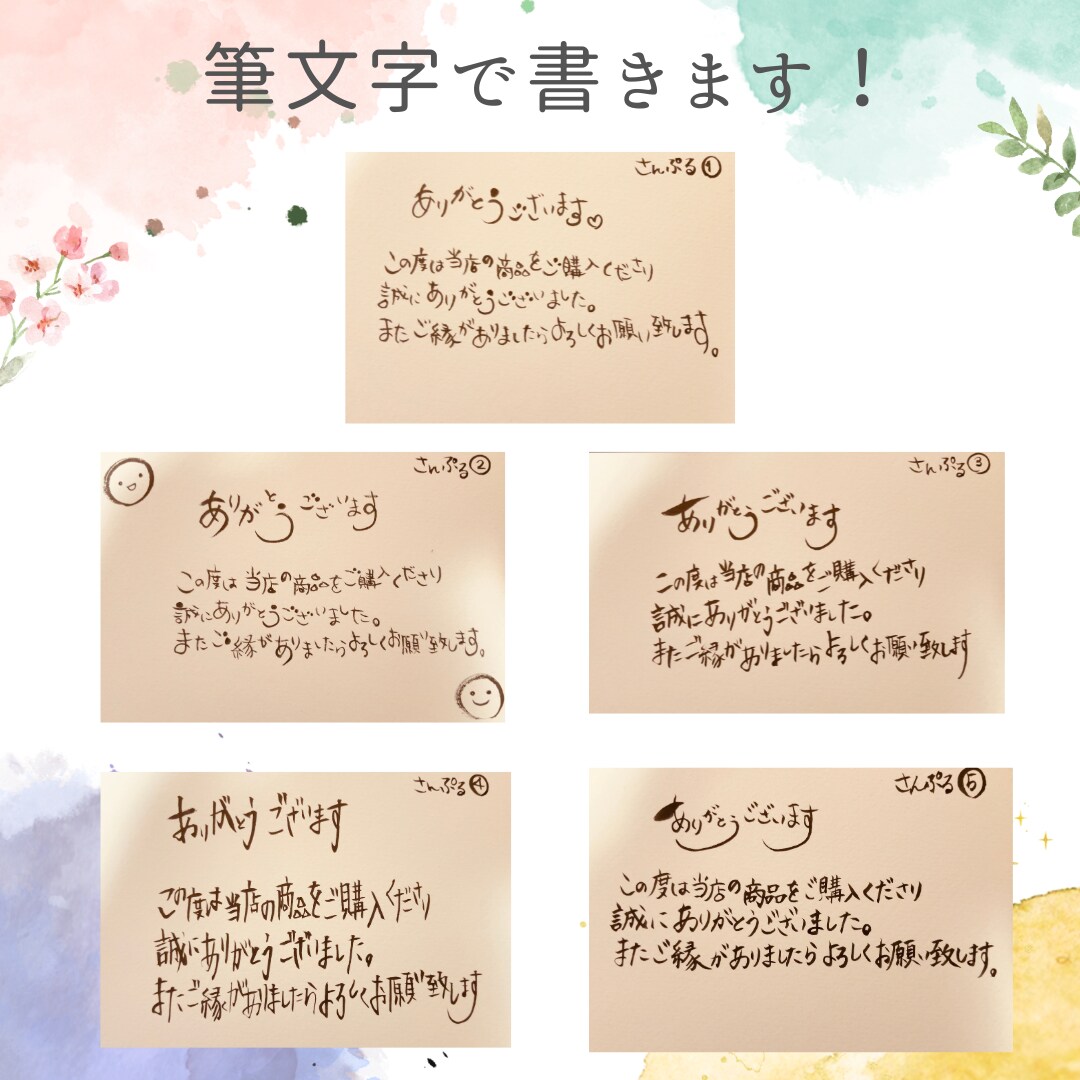 筆文字で書きます！
さんぷる①
ありがとうございます♡
この度は当店の商品をご購入くださり
誠にありがとうございました。
またご縁がありましたらよろしくお願い致します。
さんぷる②
ありがとうございます
この度は当店の商品をご購入くださり
誠にありがとうございました。
またご縁がありましたらよろしくお願い致します。
さんぷる③
ありがとうございます
この度は当店の商品をご購入くださり
誠にありがとうございました。
またご縁がありましたらよろしくお願い致します
さんぷる④
ありがとうございます
この度は当店の商品をご購入くださり
誠にありがとうございました。
またご縁がありましたらよろしくお願い致します
さんぷる⑤
ありがとうございます
この度は当店の商品をご購入くださり
誠にありがとうございました。
またご縁がありましたらよろしくお願い致します。